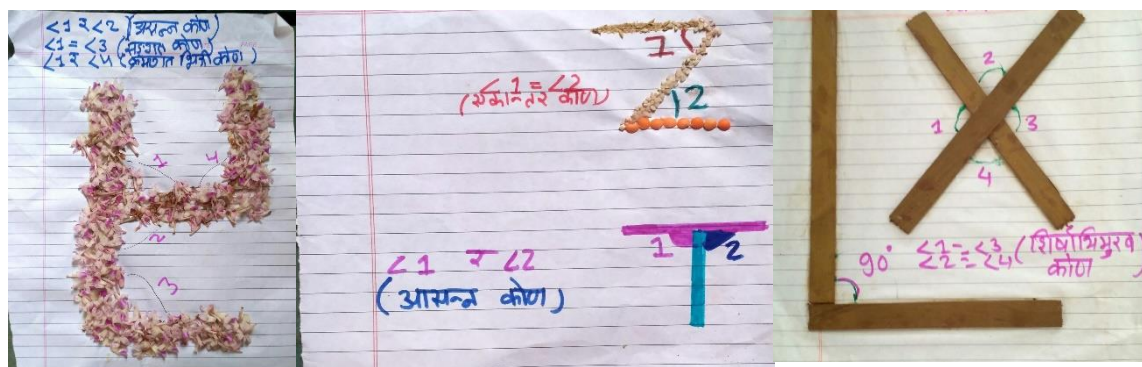 <1 र <2 (आसन्न कोण)
<1 = <3 (सङ्गत कोण)
<1 र <4 (क्रमागत भित्री कोण)
1
4
2
3
1
<1 = <2
(एकान्तर कोण)
2
1
2
<1 र <2
(आसन्न कोण)
2
1
3
4
90°
<1 = <3
<2 = <4 (शिर्षाभिमुख कोण)